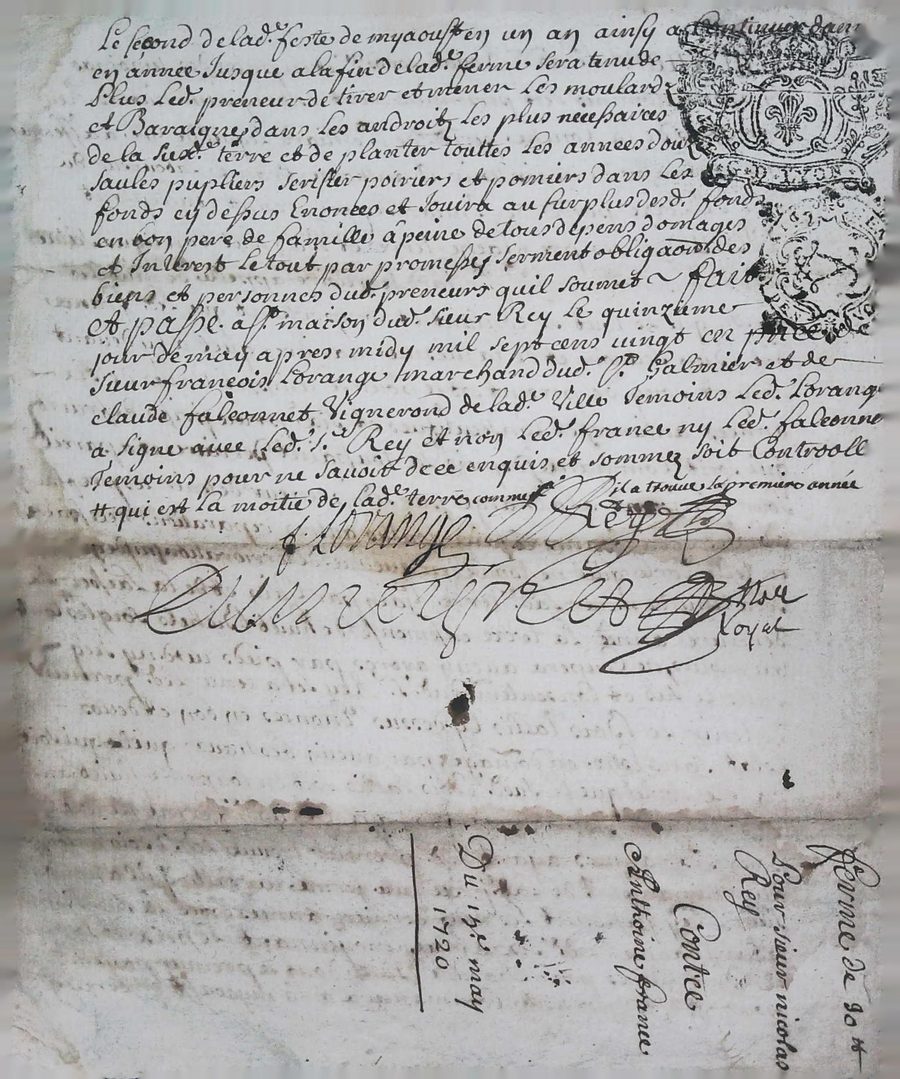 Le second de lad.e feste de myaoust en un an ainsy a Continuer dan
en annee Jusque a la fin de lad.e ferme sera tenu de
Plus Led. preneur de tirer et mener Les moulard
et Baraignes dans Les androits Les plus nécessaires
de la sus.e terre et de planter touttes Les années dou
saules pupliers serisier poiriers et pomiers dans Les
fonds cy dessus Enoncés et Jouira au surplus desd. fonds
en bon pere de famille à peine de tous depens domages
et Interest Le tout par promesses serment obligaon des
biens et personnes dud. preneurs quil soumet ~ fait
et passé a St. maison dud. sieur Rey Le quinzieme
jour de may apres midy mil sept cens vingt en pnce de
sieur francois Lorange marchand dud. St. Galmier et de
Claude falconnet Vignerond de lad.e Ville Temoins Led. Lorange
a signe avec Led. s.r Rey et non Led. france ny Led. falconne
Temoins pour ne savoir de ce enquis et sommez soit Controoll
# qui est la moitié de lad.e terre comme il a trouve la premiere année
f Lorange Rey
Royal
ferme de 90 tt
Pour sieur nicolas
Rey
Contre
Anthoine france
Du 15.e may
1720
D. LYON